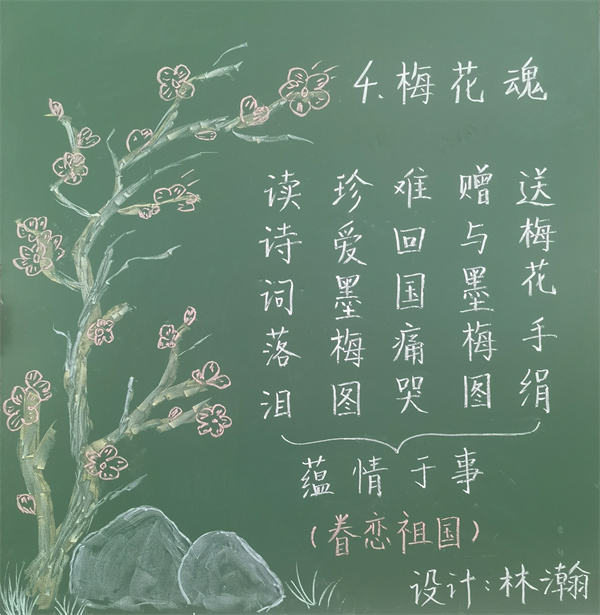 4.梅花魂
读诗词落泪
珍爱墨梅图
难回国痛哭
赠与墨梅图
送梅花手绢
蕴情于事
(眷恋祖国)
设计:林瀚